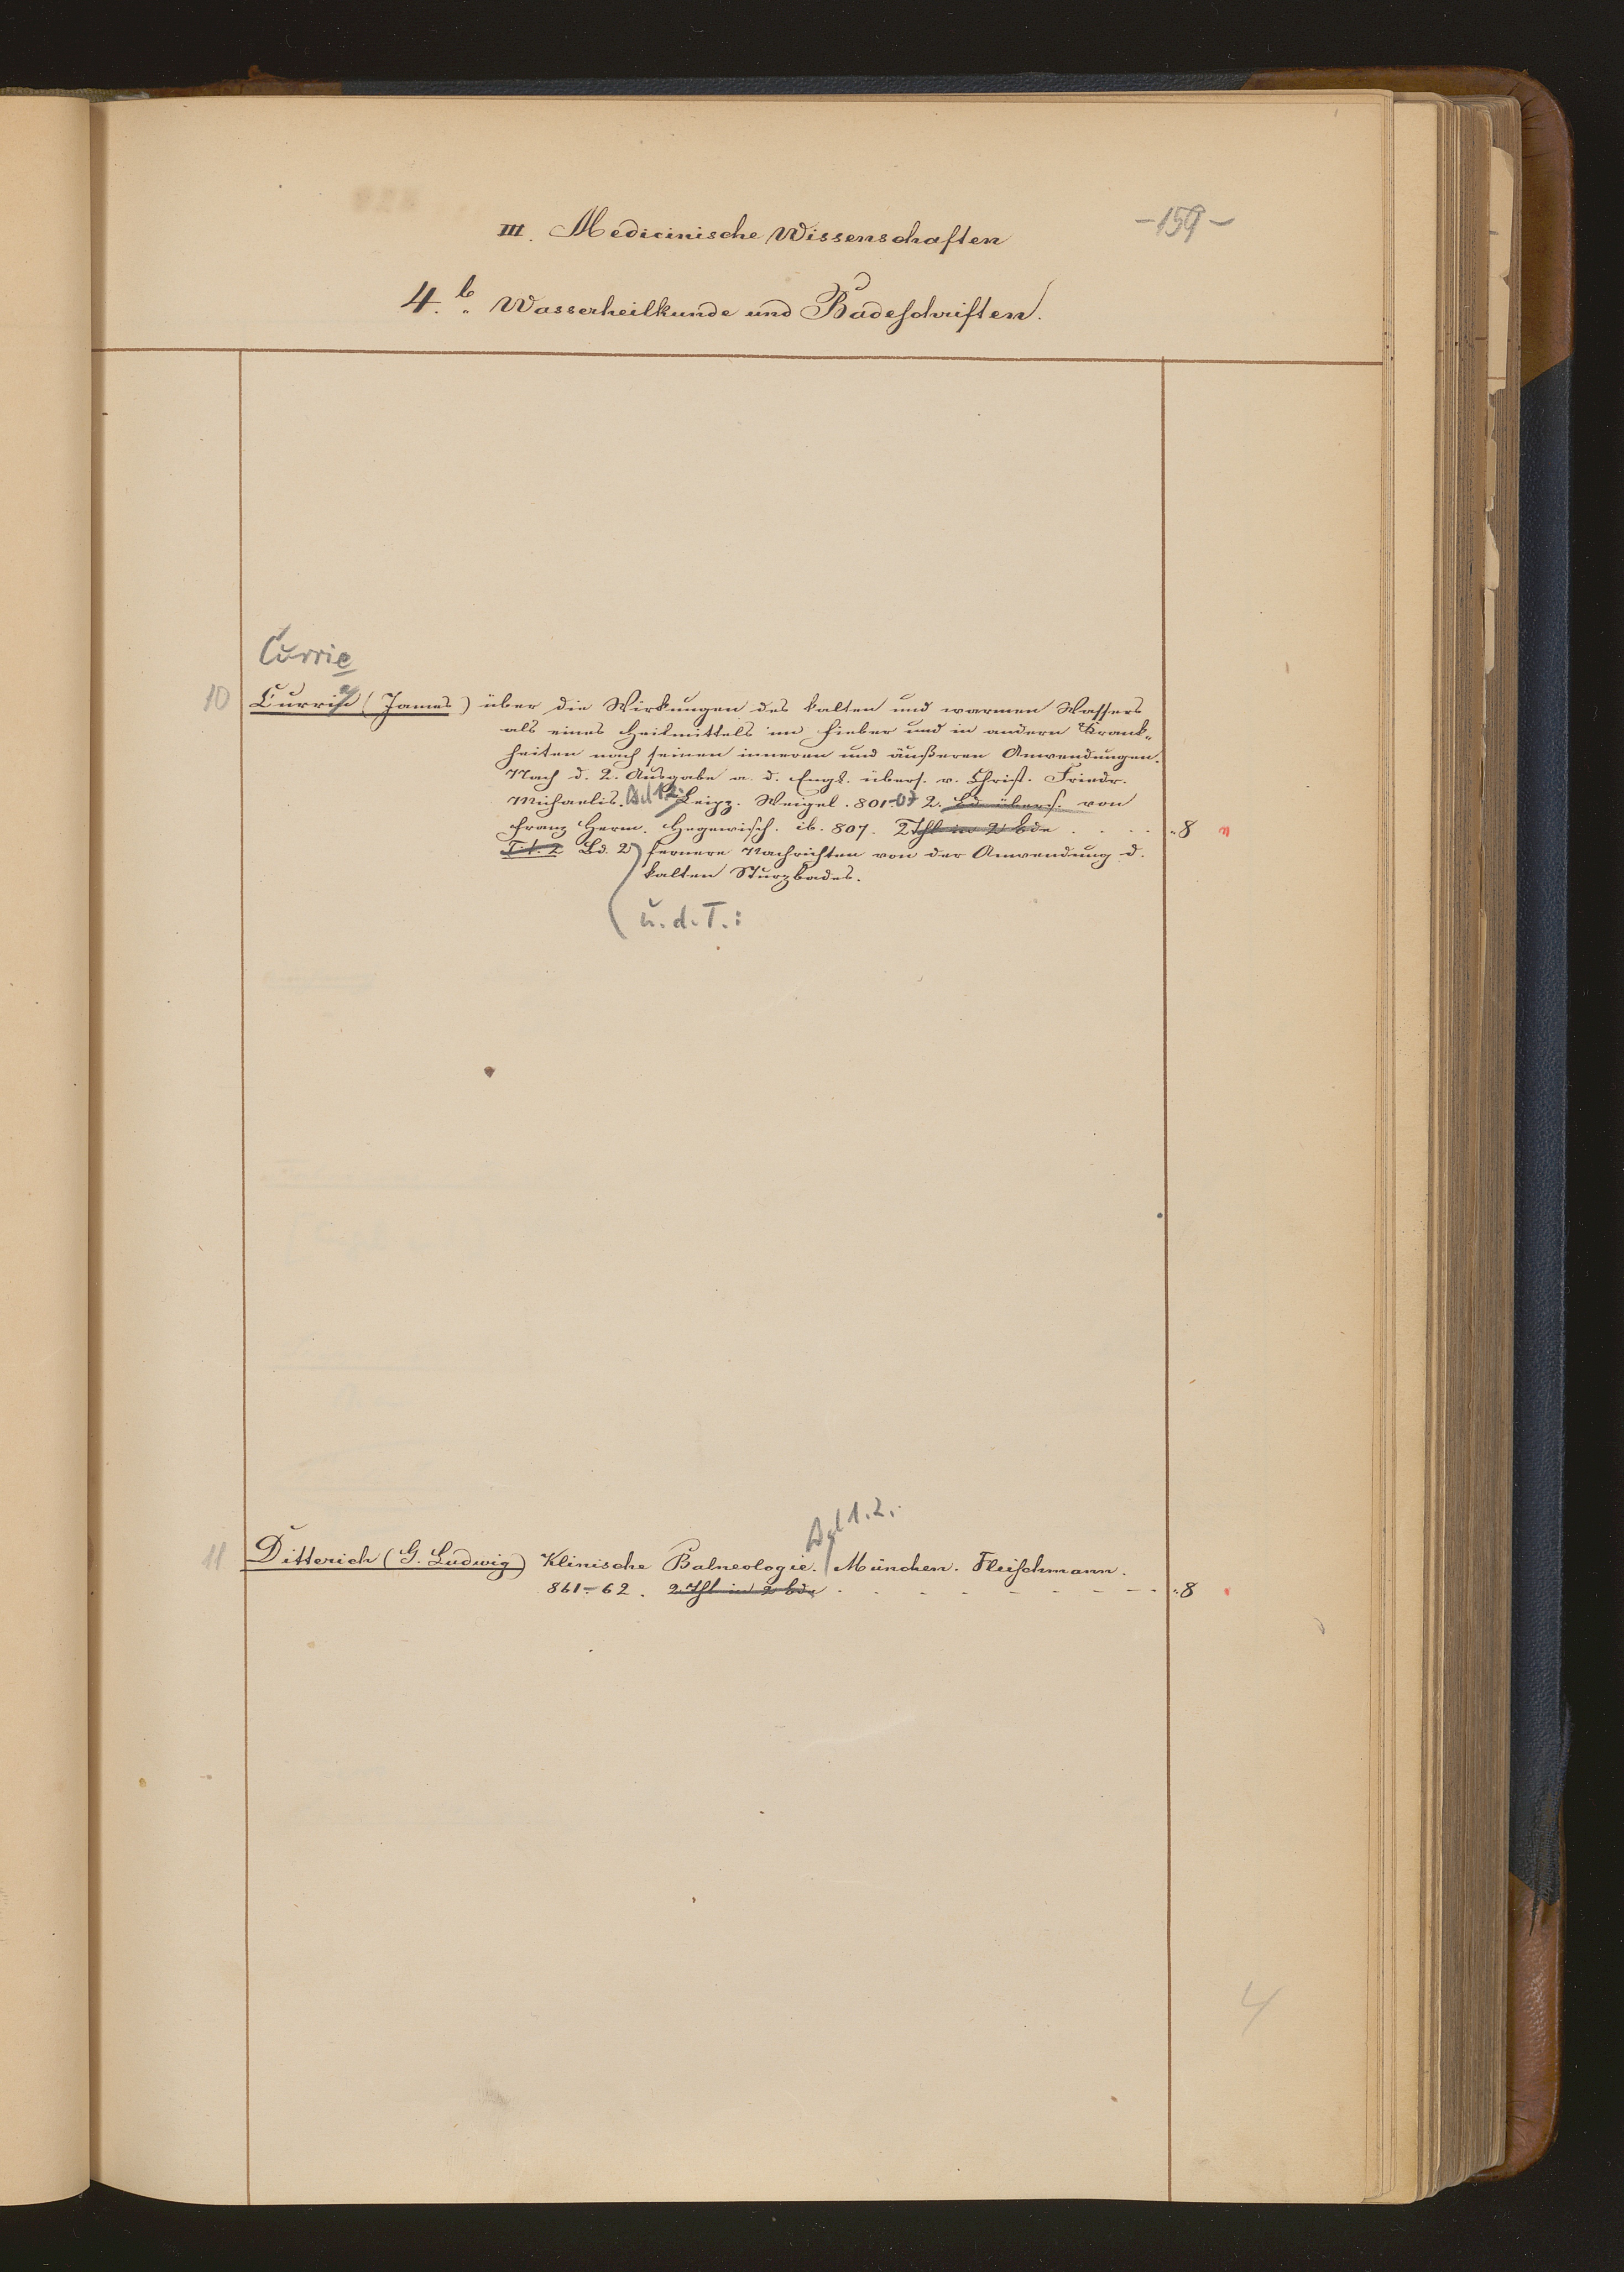 -159-
III. Medicinische Wissenschaften
4.b. Wasserheilkunde und Badeschriften.
Currie
10 Currie (James) über die Wirkungen des kalten und warmen Wassers
als eines Heilmittels im Fieber und in andern Krank-
heiten nach seinen inneren und äußeren Anwendungen.
Nach d. 2. Ausgabe a. d. Engl. übers. v. Christ. Friedr.
Michaelis. Bd 1.2. Leipz. Weigel. 801-07 2. Bd. übers. von
Franz Herm. Hegewisch. ib. 807. 2 Thl in 2 Bde . . . . „8
Tit. 2 Bd. 2 fernere Nachrichten von der Anwendung d.
kalten Sturzbades.
u. d. T.:
Bd 1.2.
11 Ditterich (G. Ludwig) Klinische Balneologie. München. Fleischmann.
861-62. 2 Thl in 2 Bde . . . . „8
4